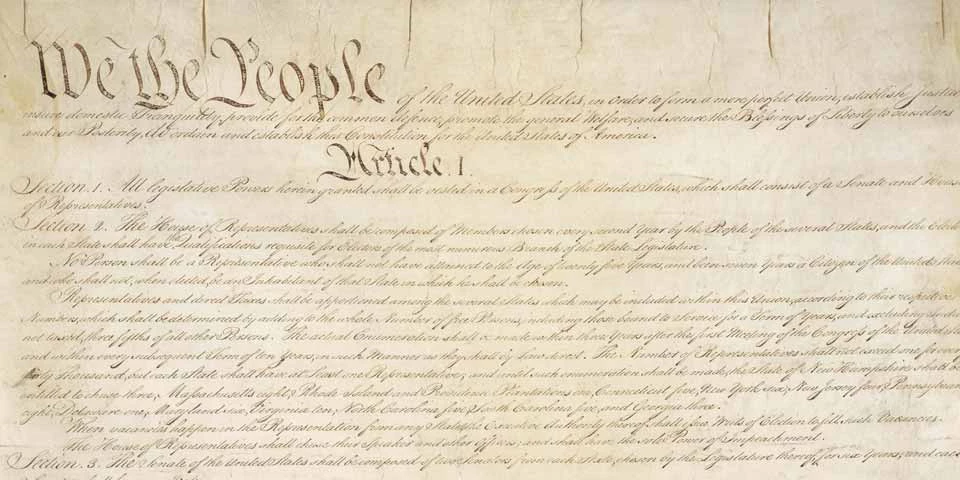 We the People of the United States, in Order to form a more perfect Union, establish Justice
insure domestic Tranquility, provide for the common defence, promote the general Welfare, and secure the Blessings of Liberty to ourselves
and our Posterity, do ordain and establish this Constitution for the United States of America.
Article. I.
Section. 1. All legislative Powers herein granted shall be vested in a Congress of the United States, which shall consist of a Senate and House
of Representatives.
Section. 2. The House of Representatives shall be composed of Members chosen every second Year by the People of the several States, and the Elect
in each State shall have the Qualifications requisite for Electors of the most numerous Branch of the State Legislature.
No Person shall be a Representative who shall not have attained to the Age of twenty five Years, and been seven Years a Citizen of the United States
and who shall not, when elected, be an Inhabitant of that State in which he shall be chosen.
Representatives and direct Taxes shall be apportioned among the several States which may be included within this Union, according to their respective
Numbers, which shall be determined by adding to the whole Number of free Persons, including those bound to Service for a Term of Years, and excluding Indians
not taxed, three fifths of all other Persons. The actual Enumeration shall be made within three Years after the first Meeting of the Congress of the United States
and within every subsequent Term of ten Years, in such Manner as they shall by Law direct. The Number of Representatives shall not exceed one for every
thirty Thousand, but each State shall have at Least one Representative; and until such enumeration shall be made, the State of New Hampshire shall be
entitled to chuse three, Massachusetts eight, Rhode Island and Providence Plantations one, Connecticut five, New York six, New Jersey four, Pennsylvan
eight, Delaware one, Maryland six, Virginia ten, North Carolina five, South Carolina five, and Georgia three.
When vacancies happen in the Representation from any State, the Executive Authority thereof shall issue Writs of Election to fill such Vacancies.
The House of Representatives shall chuse their Speaker and other Officers; and shall have the sole Power of Impeachment.
Section. 3. The Senate of the United States shall be composed of two Senators from each State, chosen by the Legislature thereof, for six Years; and each